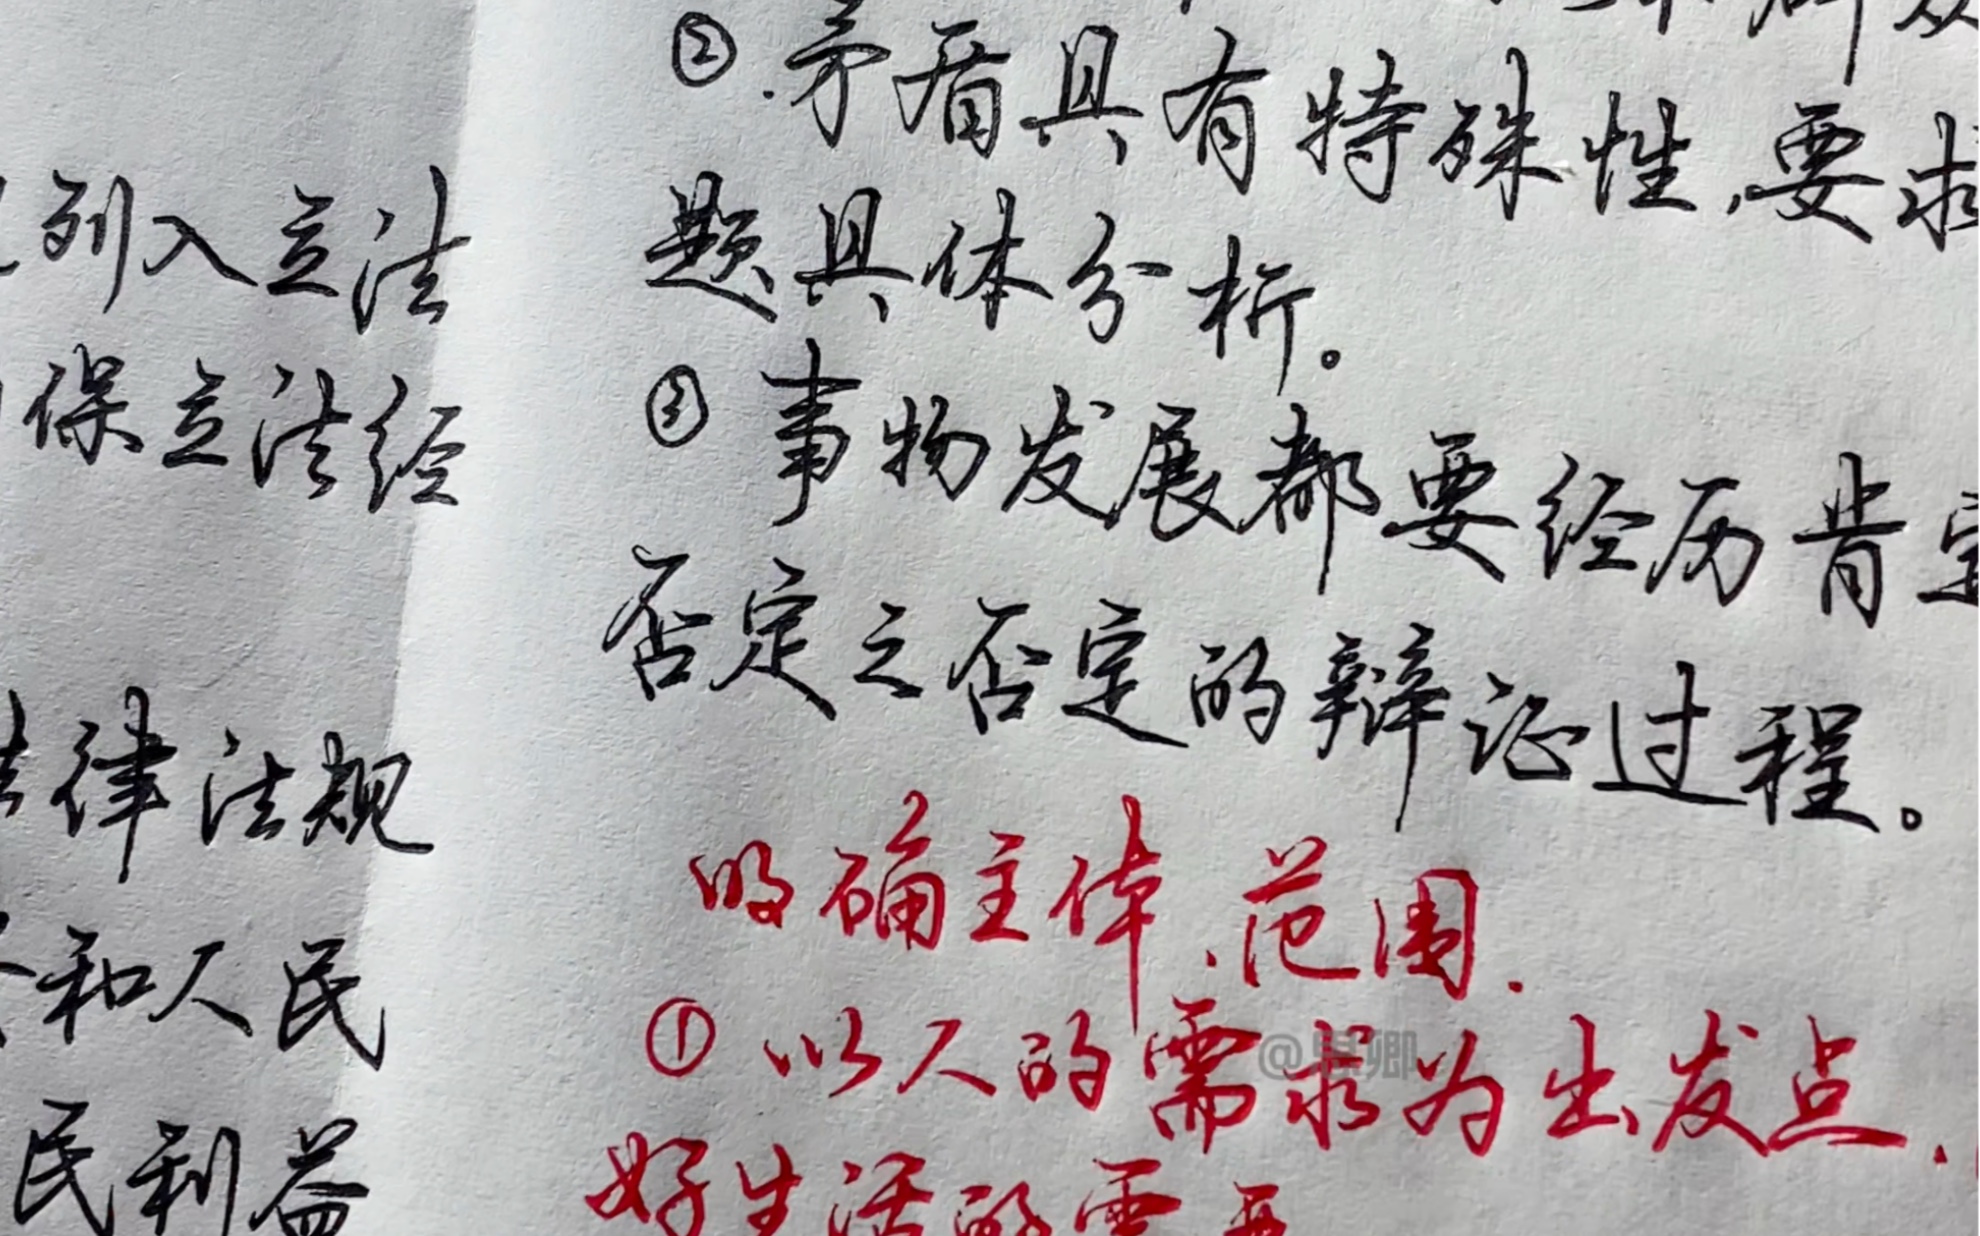 列入立法
保立法经
法律法规
和人民
民利益
② 矛盾具有特殊性,要求
题具体分析。
③ 事物发展都要经历肯定
否定之否定的辩证过程。
明确主体、范围.
① 以人的需求为出发点,
好生活的需要